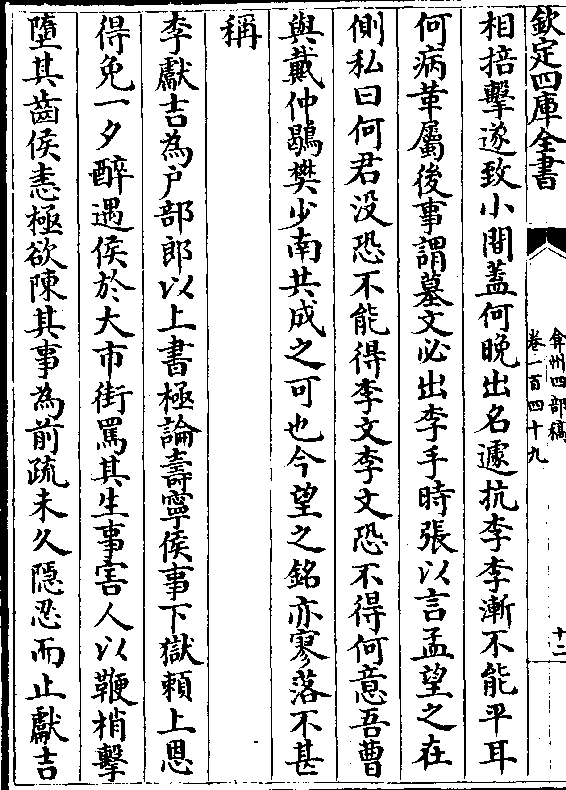 欽定四庫全書
弇州四部稿
卷一百四十九
十二
相掊擊遂致小間蓋何晚出名遽抗李李漸不能平耳
何病革屬後事謂墓文必出李手時張以言孟望之在
側私曰何君没恐不能得李文李文恐不得何意吾曹
與戴仲鶡樊少南共成之可也今望之銘亦寥落不甚
稱
李獻吉為户部郎以上書極論壽寧侯事下獄頼上恩
得免一夕醉遇侯於大市街罵其生事害人以鞭梢擊
墮其齒侯恚極欲陳其事為前疏未久隠忍而止獻吉